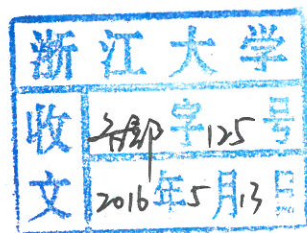 浙江大学
收文 字125号
2016年5月13日